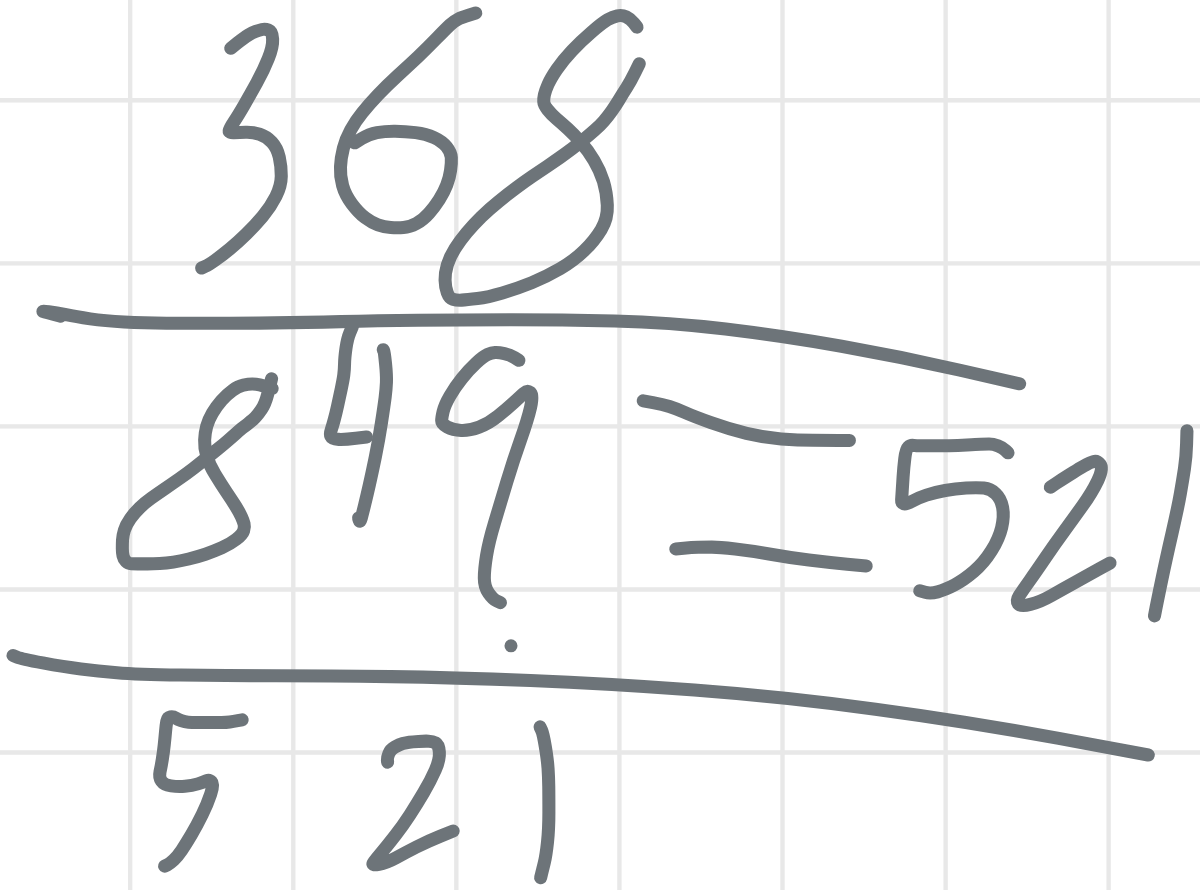 368
849 = 521
521